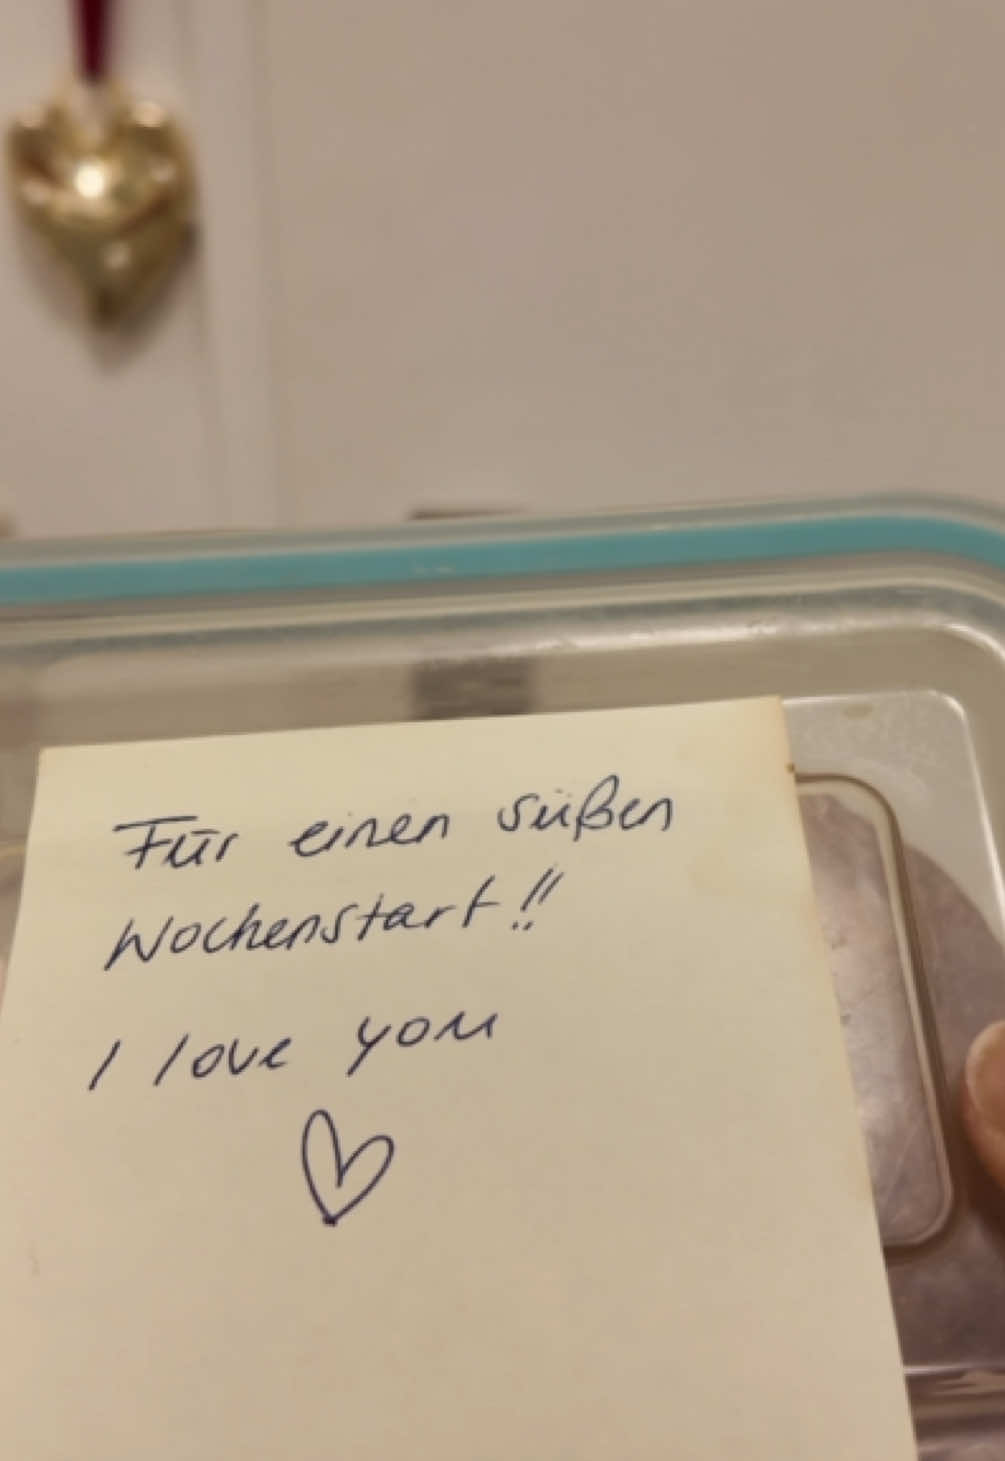 Für einen süßen
Wochenstart!!
I love you